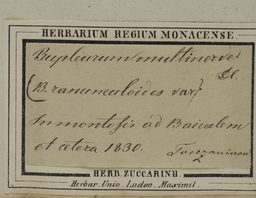 HERBARIUM REGIUM MONACENSE.
Bupleurum multinerve
DC.
(B. ranunculoides var.)
In montosis ad Baicalem
et cetera 1830.
Turczaninow
HERB. ZUCCARINII.
Herbar. Univ. Ludov. Maximil.